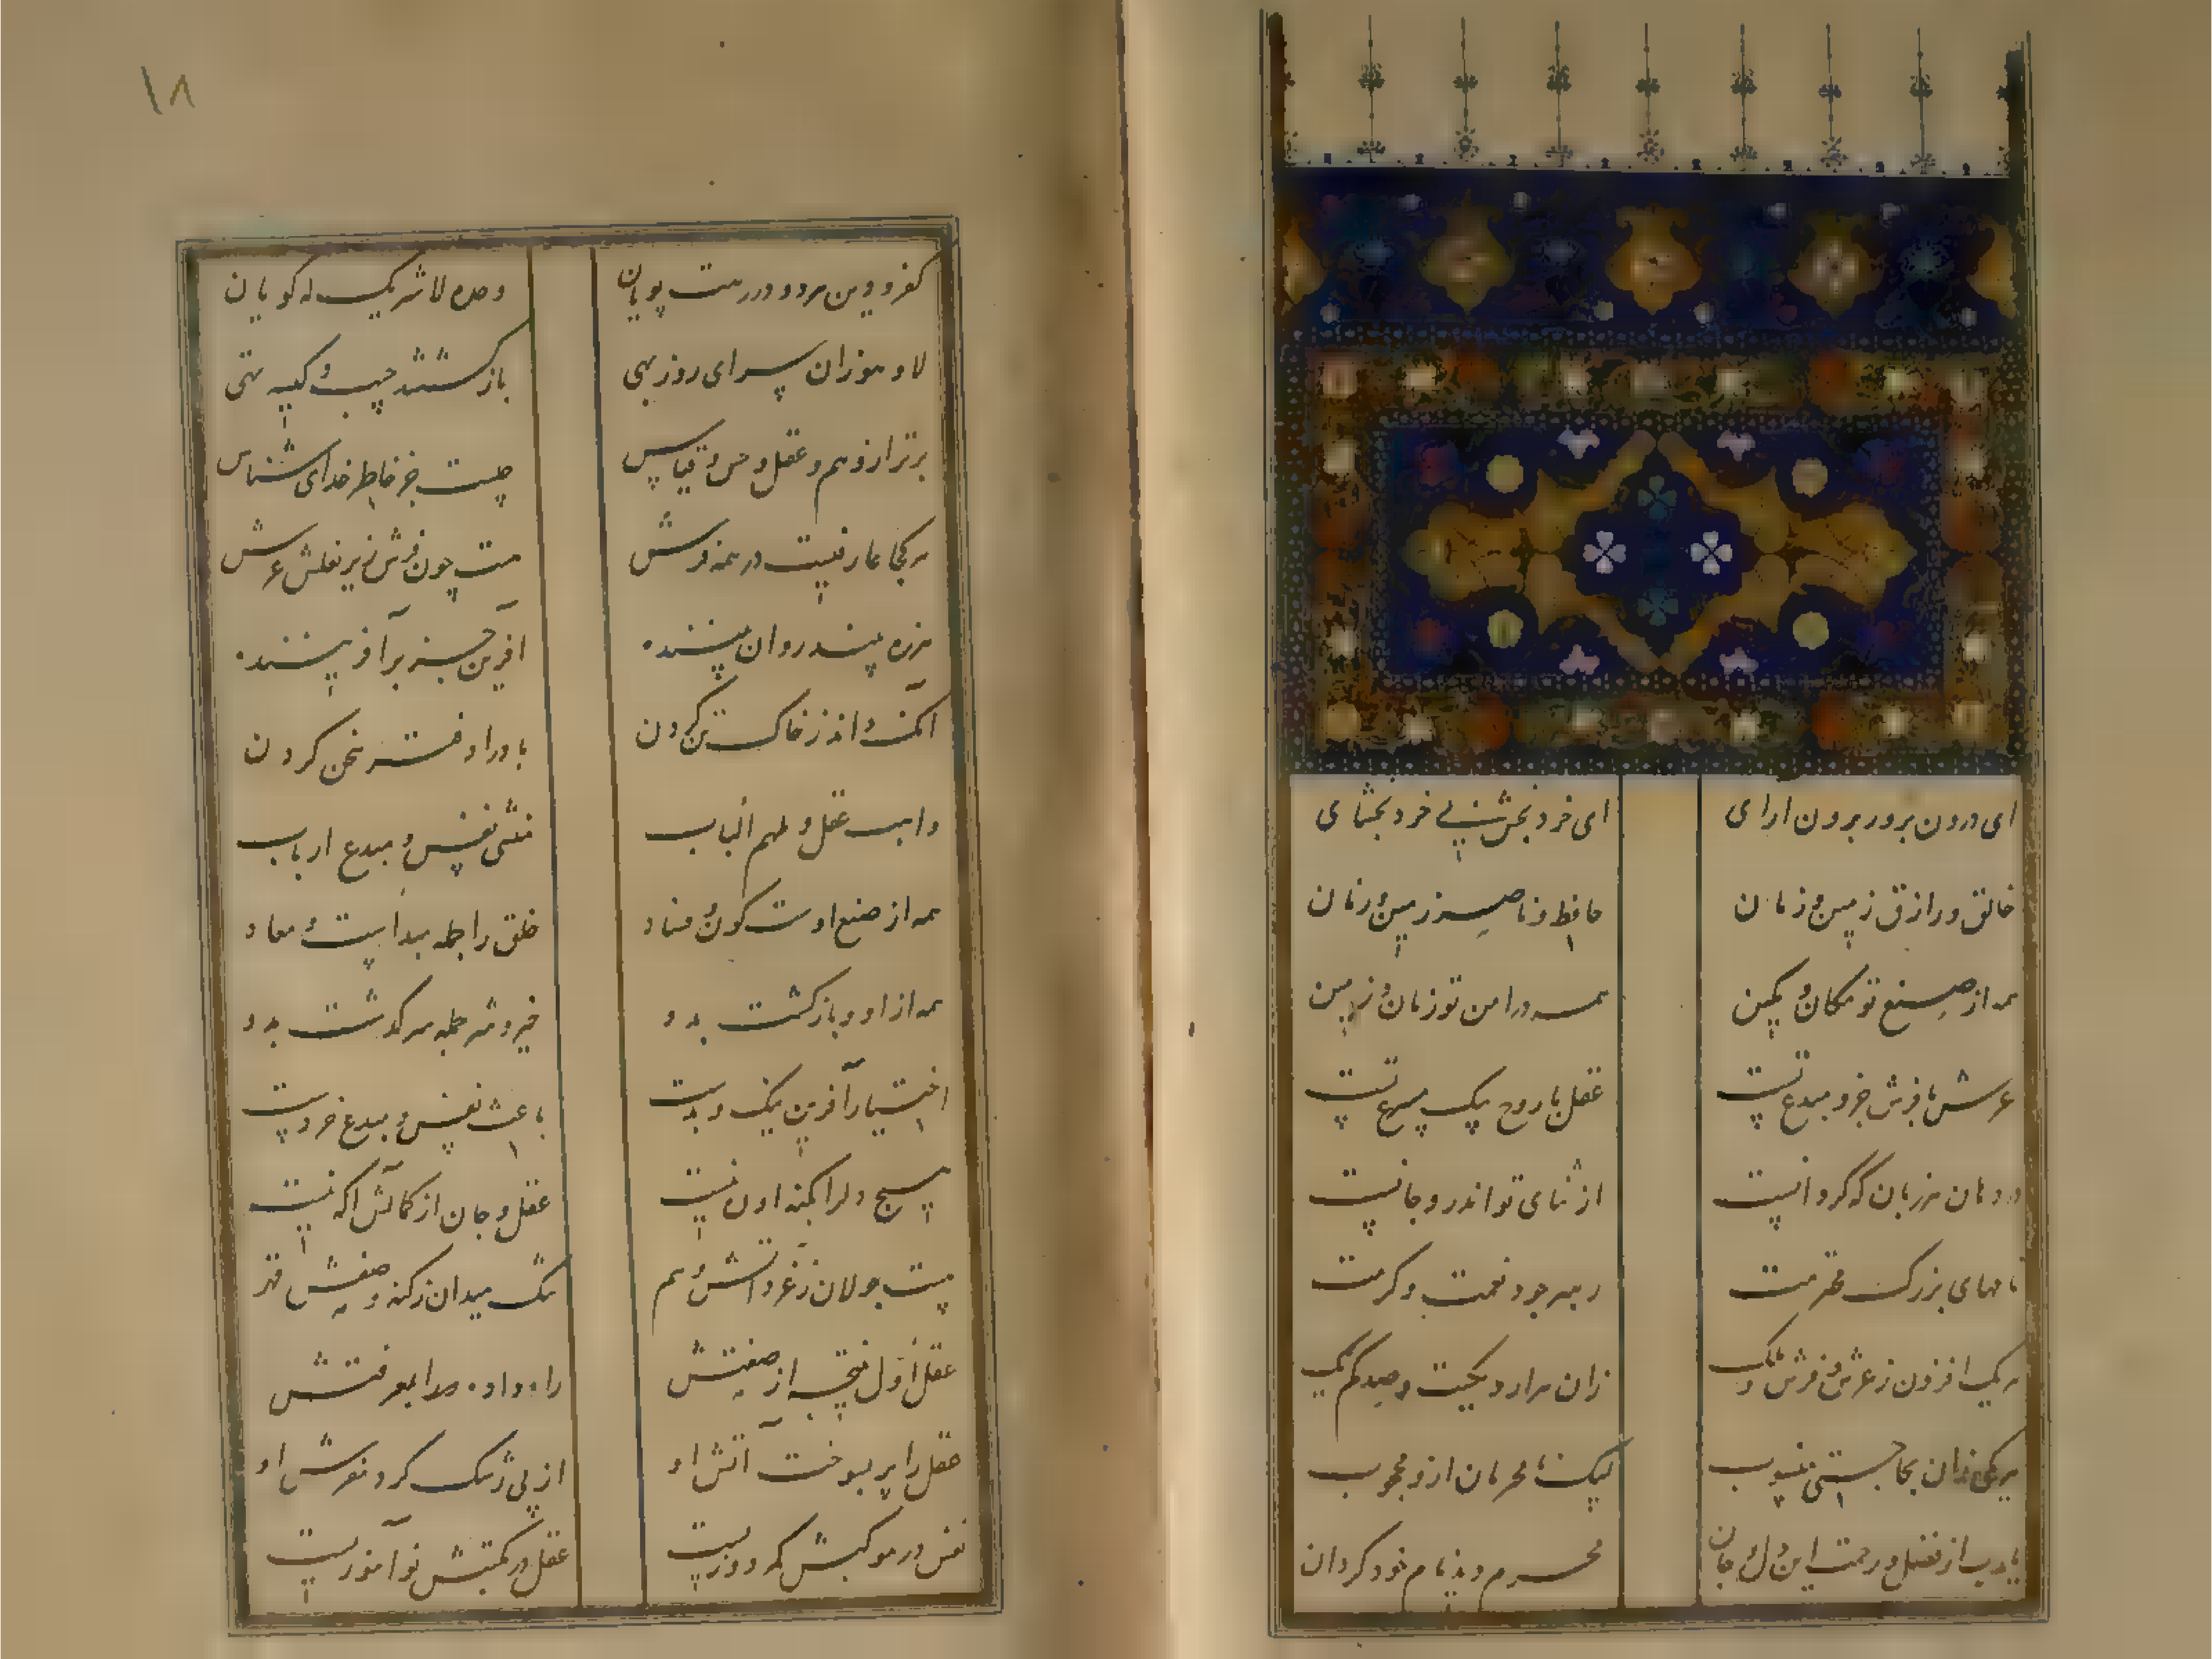 ای درون پرور برون ارای ای خرد بخش بی خرد بخشای
خالق و رازق زمین و زمان حافظ و ناصر زمین و زمان
همه از صنع تو مکان و مکین همه در امر تو زمان و زمین
عرش تا فرش جزو مبدع تست عقل با روح پیک مسرع تست
در دهان هر زبان که گردانست از ثنای تو اندرو جانست
نامهای بزرگ محترمت رهبر جود و نعمت و کرمت
هر یک افزون ز عرش و فرش و ملک زان هزار و یکیست و صد کم یک
هر یکی زان بحاجتی منسوب لیک نامحرمان ازو محجوب
یارب از فضل و رحمت این دل و جان محرم دید نام خود گردان
۱۸
کفر و دین هر دو در رهت پویان وحده لاشریک له گویان
لا و هو زان سرای روز بهی باز گشتند جیب و کیسه تهی
برتر از وهم و عقل و حس و قیاس چیست جز خاطر خدای شناس
هر کجا عارفیست در همه فرش هست چون فرش زیر نعلش عرش
هرزه بیند روان بیننده آفرین جز بر آفریننده
آنک داند ز خاک تن کردن باد را دفتر سخن کردن
واهب عقل و ملهم الباب منشی نفس و مبدع ارباب
همه از صنع اوست کون و فساد خلق را جمله مبدا است و معاد
همه از او و بازگشت بدو خیر و شر جمله سرگذشت بدو
اختیار آفرین نیک و بدست باعث نفس و مبدع خردست
هیچ دل را بکنه او ره نیست عقل و جان از کمالش اگه نیست
هست جولان ز عز ذاتش وهم تنگ میدان ز کنه وصفش فهم
عقل اول نتیجه از صفتش راه داده ورا بمعرفتش
عقل را پر بسوخت آتش او از پی رشک کرد مفرش او
نفس در موکبش که دوزیست عقل در مکتبش نوآموزیست